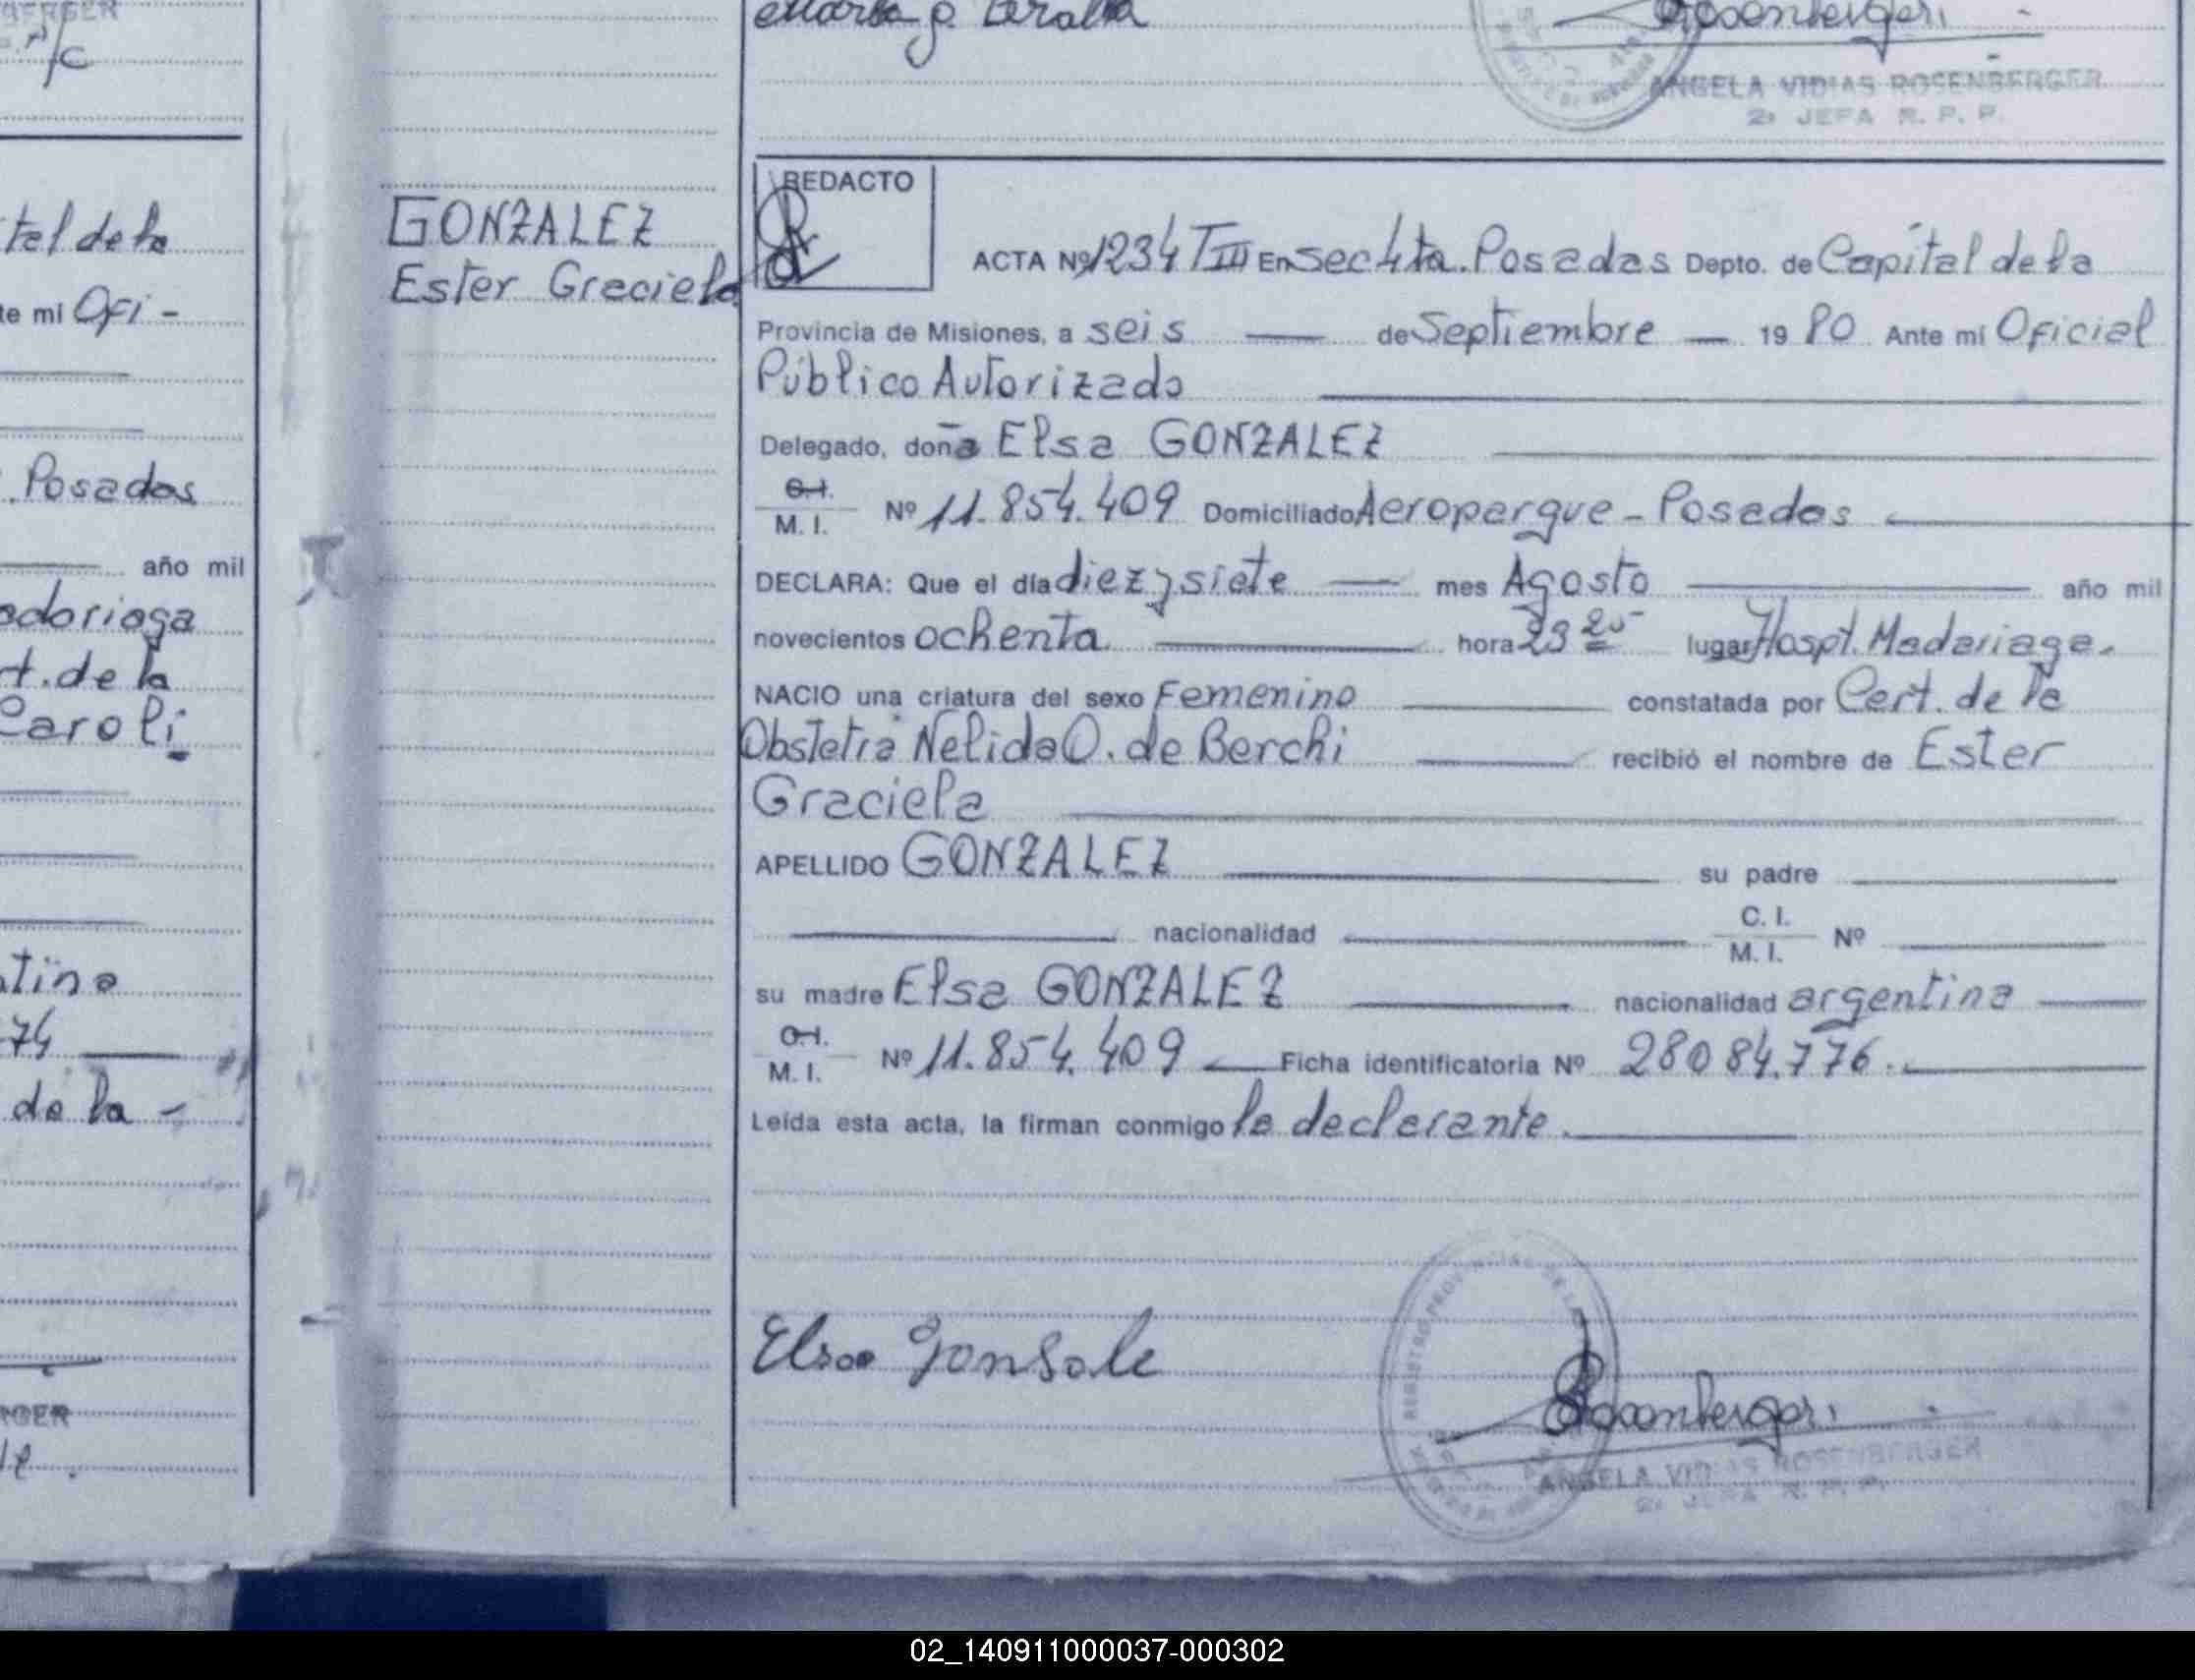 BERGER
P/C
tel de la
te mi Ofi -
. Posadas
año mil
adariaga
t. de la
Caroli
tina
74
de la -
RGER
GONZALEZ
Ester Graciela
Rosenberger
ANGELA VIDIAS ROSENBERGER
2a JEFA R. P. P.
REDACTO
ACTA Nº 1234 TIII En Sec 4ta. Posadas Depto. de Capital de la
Provincia de Misiones, a seis de Septiembre 19 80 Ante mi Oficial
Público Autorizado
Delegado, doña Elsa GONZALEZ
C.I.
M. I. Nº 11.854.409 Domiciliado Aeroparque - Posadas
DECLARA: Que el día diez y siete mes Agosto año mil
novecientos ochenta hora 23 20 lugar Hospt. Madariaga.
NACIO una criatura del sexo Femenino constatada por Cert. de la
Obstetra Nelida O. de Berchi recibió el nombre de Ester
Graciela
APELLIDO GONZALEZ su padre
nacionalidad C. I.
M. I. Nº
su madre Elsa GONZALEZ nacionalidad argentina
C.I.
M. I. Nº 11.854.409 Ficha identificatoria Nº 28084.776.
Leída esta acta, la firman conmigo la declarante.
Elsa Gonsale
Rosenberger
ANGELA VIDIAS ROSENBERGER
2a JEFA R. P. P.
02_140911000037-000302